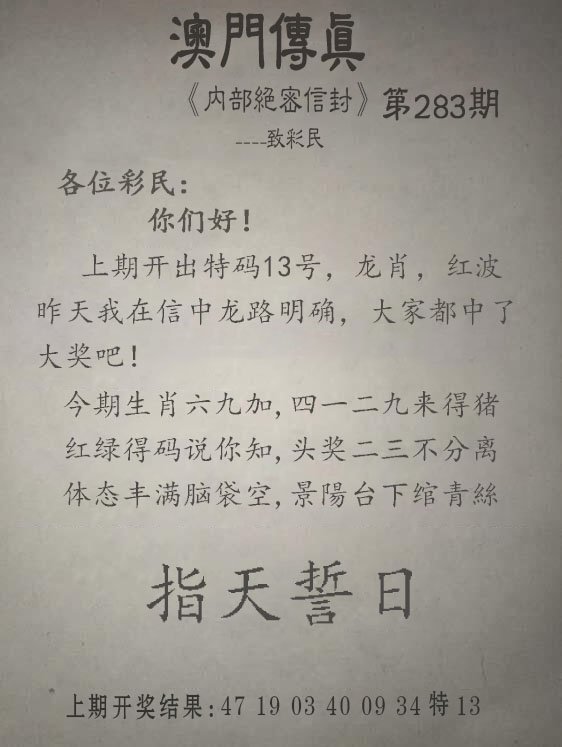 澳門傳眞
《内部絕密信封》第283期
----致彩民
各位彩民:
你们好!
上期开出特码13号，龙肖，红波
昨天我在信中龙路明确，大家都中了
大奖吧!
今期生肖六九加,四一二九来得猪
红绿得码说你知,头奖二三不分离
体态丰满脑袋空,景陽台下绾青絲
指天誓日
上期开奖结果:47 19 03 40 09 34特13